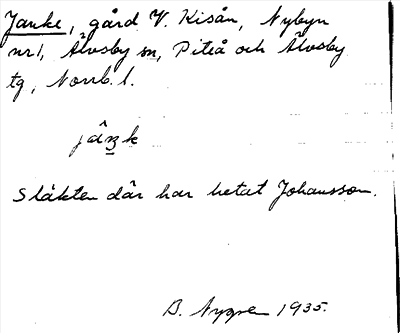 Janke, gård V. Kisån, Nybyn
nr 1, Älvsby sn, Piteå och Älvsby
tg, Norrb. l.
Släkten där har hetat Johansson.
B. Nygren 1935.